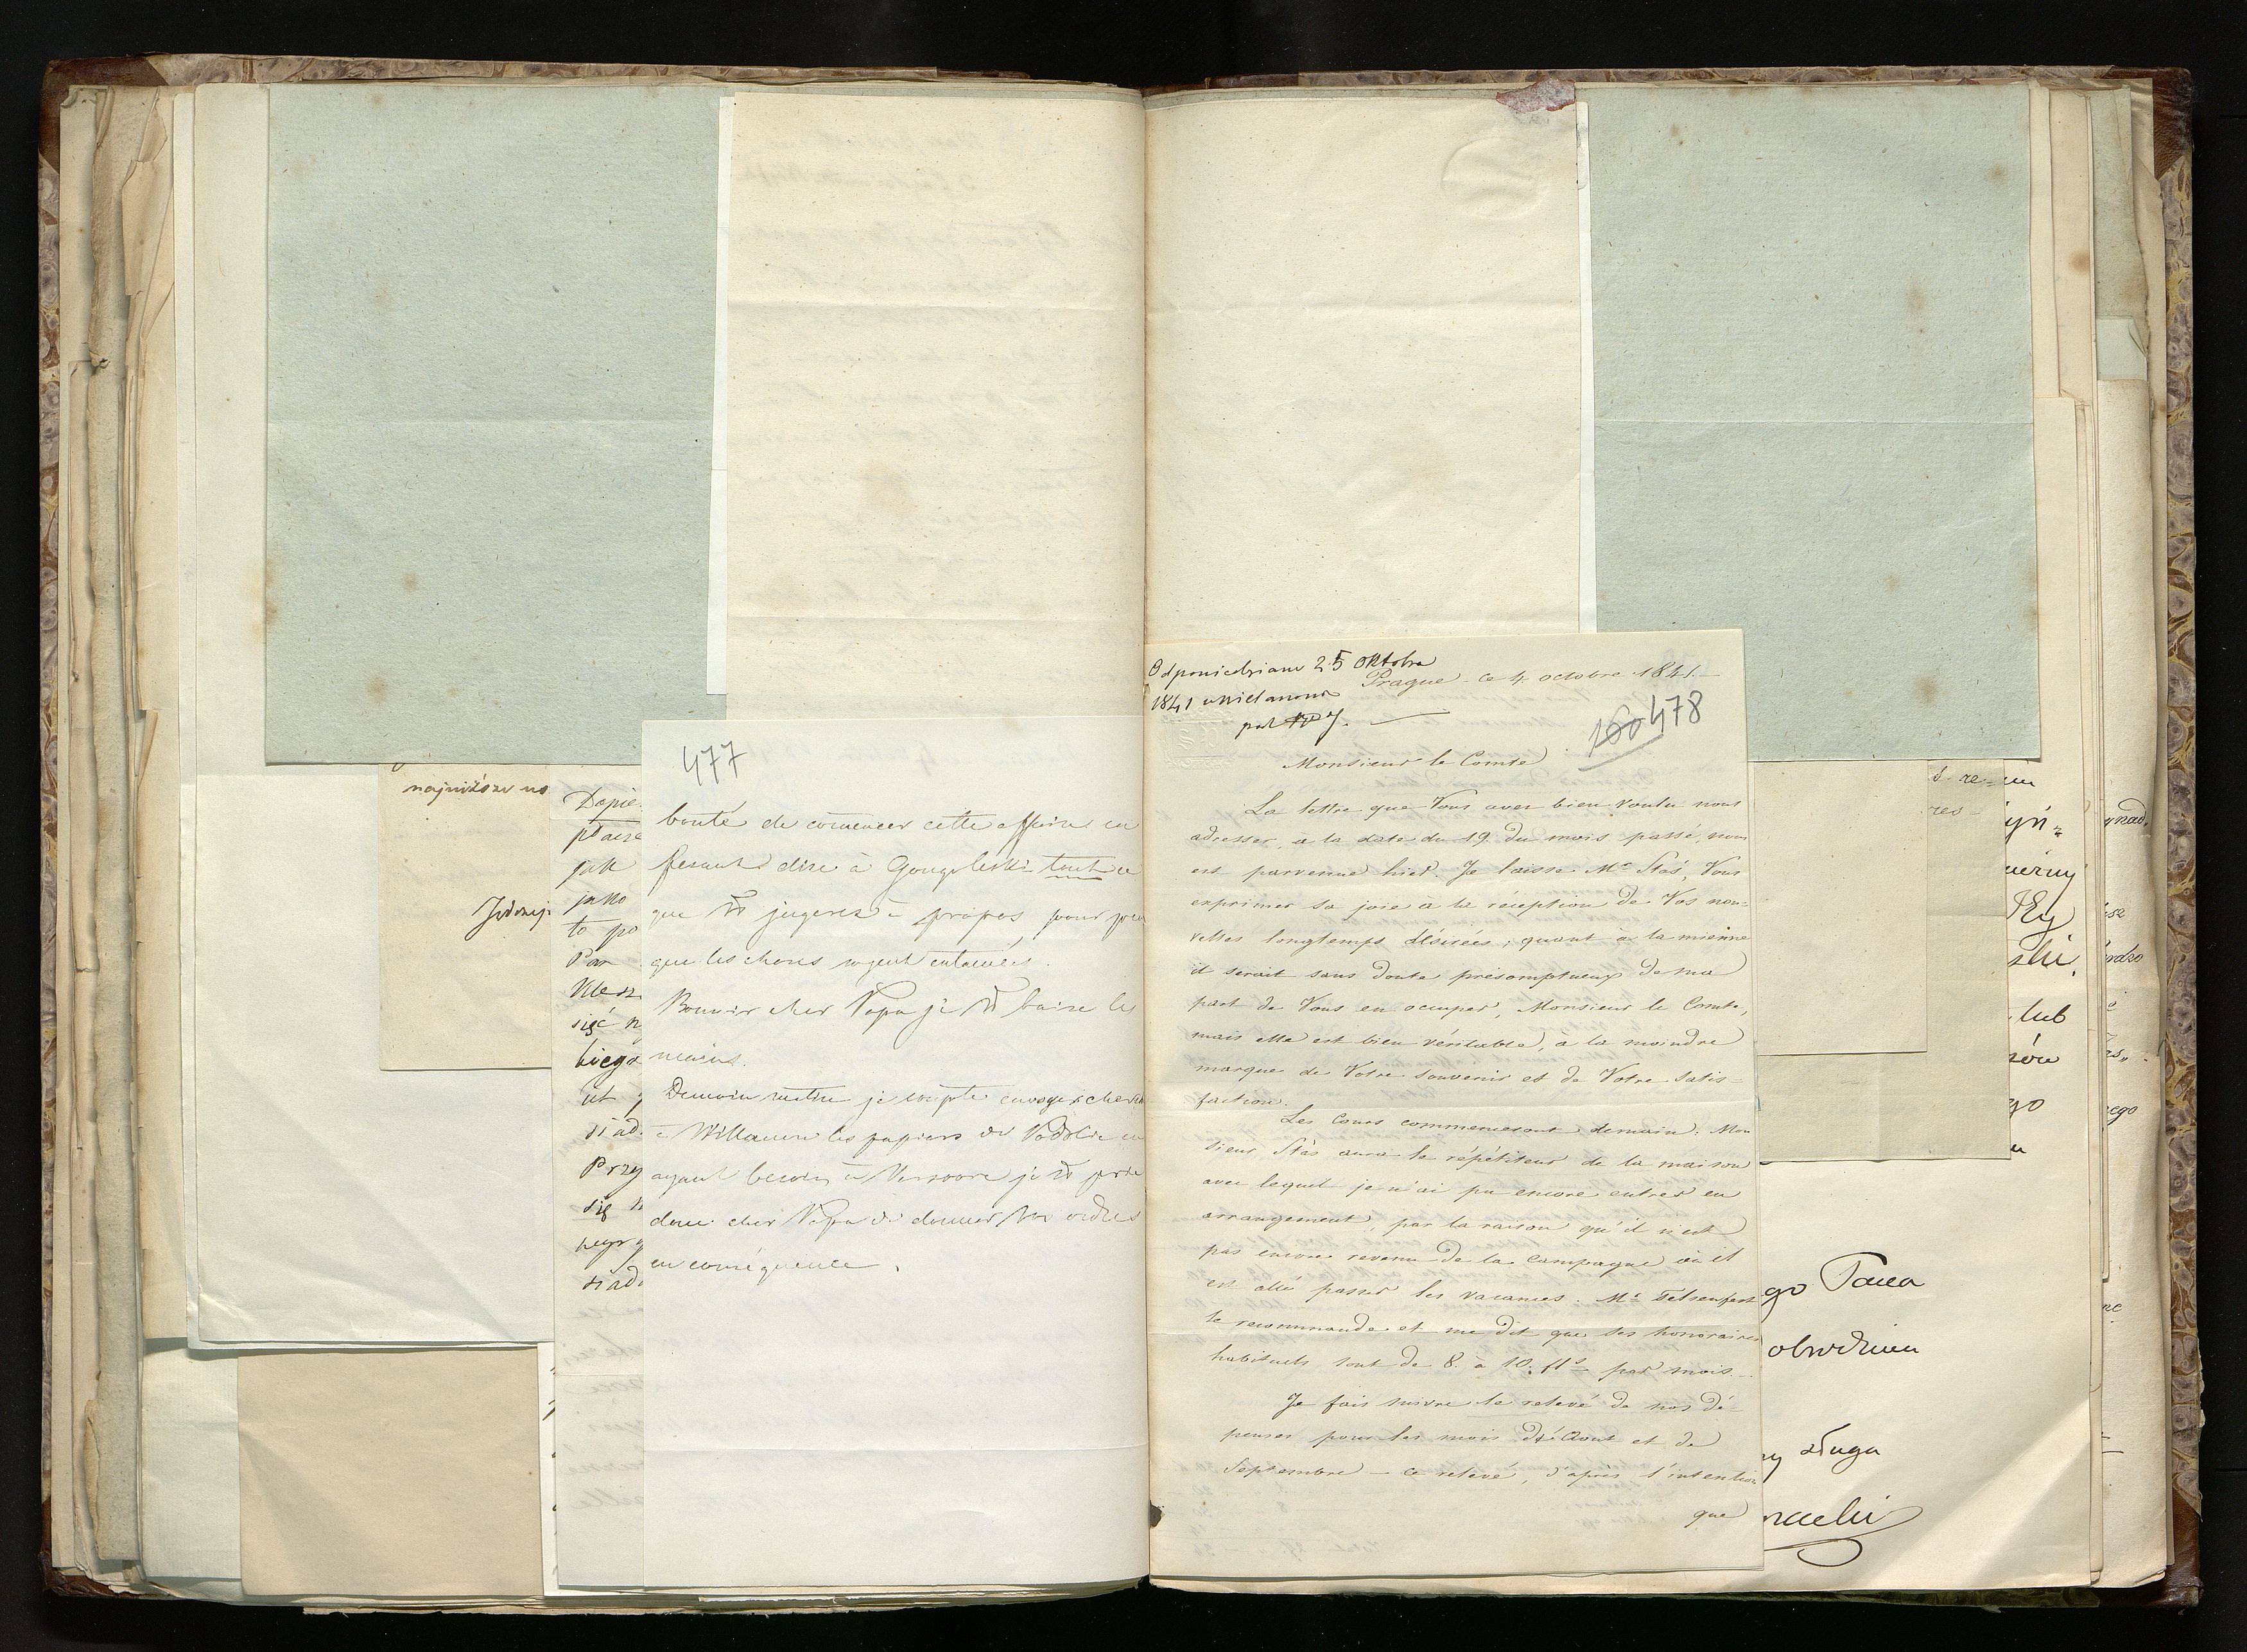 najniższe us
Dopie
płace
jak
jako
to po
Par
sięć n
biega
ut
siad.
Przy
się n
siad
477
bonté de comencer cette affaire en
fesant dire à Gougolewski tout ce
que vs jugerez à propos, pour peu
que les choses soyent entamées.
Bonsoir cher Papa je vs baise les
mains.
Demain matin je compte envoyer chercher
à Willanow les papiers de Podolie en
ayant besoin à Varsovie je vs prie
donc cher Papa de donner vos ordres
en conséquence.
Odpowiedziano 25 Oktobra
1841 z Willanowa
Prague ce 4 octobre 1841.
160 478
Monsieur le Comte
La lettre que Vous avez bien voulu nous
adresser, à la date du 19 du mois passé, nous
est parvenue hier. Je laisse Mr Stas, Vous
exprimer sa joie à la réception de Vos nou=
velles longtemps désirées; quant à la mienne
il serait sans doute présomptueux de ma
part de Vous en occuper, Monsieur le Comte,
mais elle est bien véritable, à la moindre
marque de Votre souvenir et de Votre satis=
faction.
Les cours commenceront demain: Mon
sieur Stas aura le répétiteur de la maison
avec lequel je n'ai pu encore entrer en
arrangement, par la raison qu'il n'est
pas encore revenu de la campagne où il
est allé passer les vacances. Mr
le recommande et me dit que ses honoraires
habituels sont de 8. à 10. fls par mois.
Je fais suivre le relevé de nos dé=
penses pour les mois d'Aout et de
Septembre – ce relevé, d'après l'intention
que
lub
go Pana
sługa